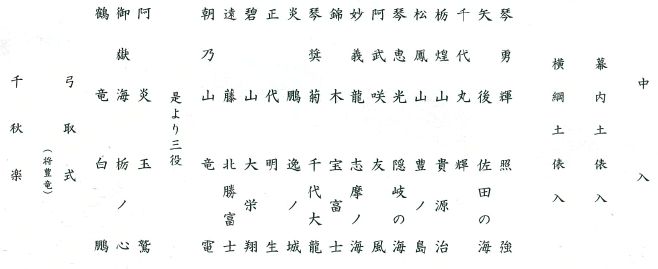 中入
幕内土俵入
横綱土俵入
琴勇輝 照強
矢後 佐田の海
千代丸 輝
栃煌山 貴源治
松鳳山 豊ノ島
琴恵光 隠岐の海
阿武咲 友風
妙義龍 志摩ノ海
錦木 宝富士
琴奨菊 千代大龍
炎鵬 逸ノ城
正代 明生
碧山 大栄翔
遠藤 北勝富士
朝乃山 竜電
是より三役
阿炎 玉鷲
御嶽海 栃ノ心
鶴竜 白鵬
弓取式
(将豊竜)
千秋楽